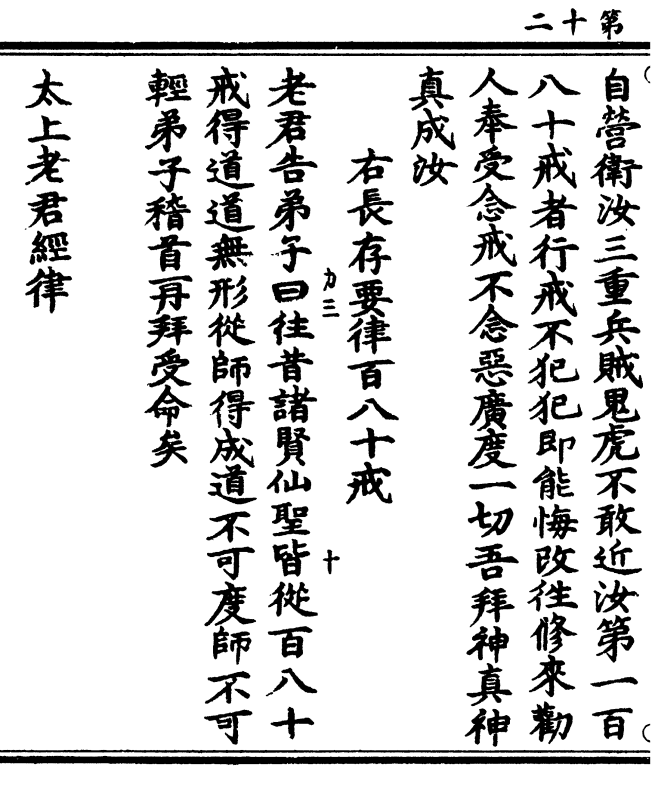 第十二
自營衛汝三重兵賊鬼虎不敢近汝第一百
八十戒者行戒不犯犯即能悔改徃修來勸
人奉受念戒不念惡廣度一切吾拜神真神
真成汝
右長存要律百八十戒
力三
十
老君告弟子曰徃昔諸賢仙聖皆從百八十
戒得道道無形從師得成道不可度師不可
輕弟子稽首再拜受命矣
太上老君經律